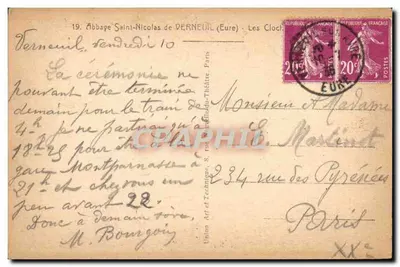 19. Abbaye Saint-Nicolas de VERNEUIL (Eure) - Les Cloch
Verneuil, vendredi 10
La cérémonie ne
pouvant être terminée
demain pour le train de
4h je ne partirai
18h25 pour
gare Montparnasse à
21h et chez vous un
peu avant 22.
Donc à demain soir.
M. Bourgoin
Monsieur et Madame
E. Martinet
234 rue des Pyrénées
Paris
XXe
RÉPUBLIQUE FRANÇAISE
20c 20c
POSTES
EURE
Union Art et Technique,
CPAPHIL